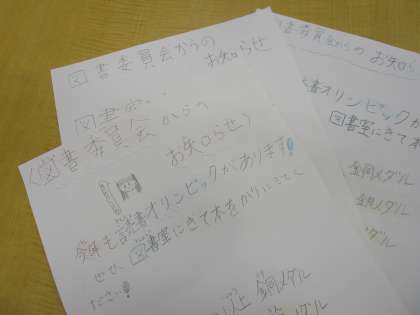 図書委員会からの
お知らせ
図書委
図書委員会からの
お知らせ
今年も読書オリンピックがあります!
ぜひ、図書室にきて本をかりにきてく
ださい!
以上 銅メダル
メダル
書委員会からの お知ら
読書オリンピックが
図書室にきて本
金銅メダル
銀メダル
メダル